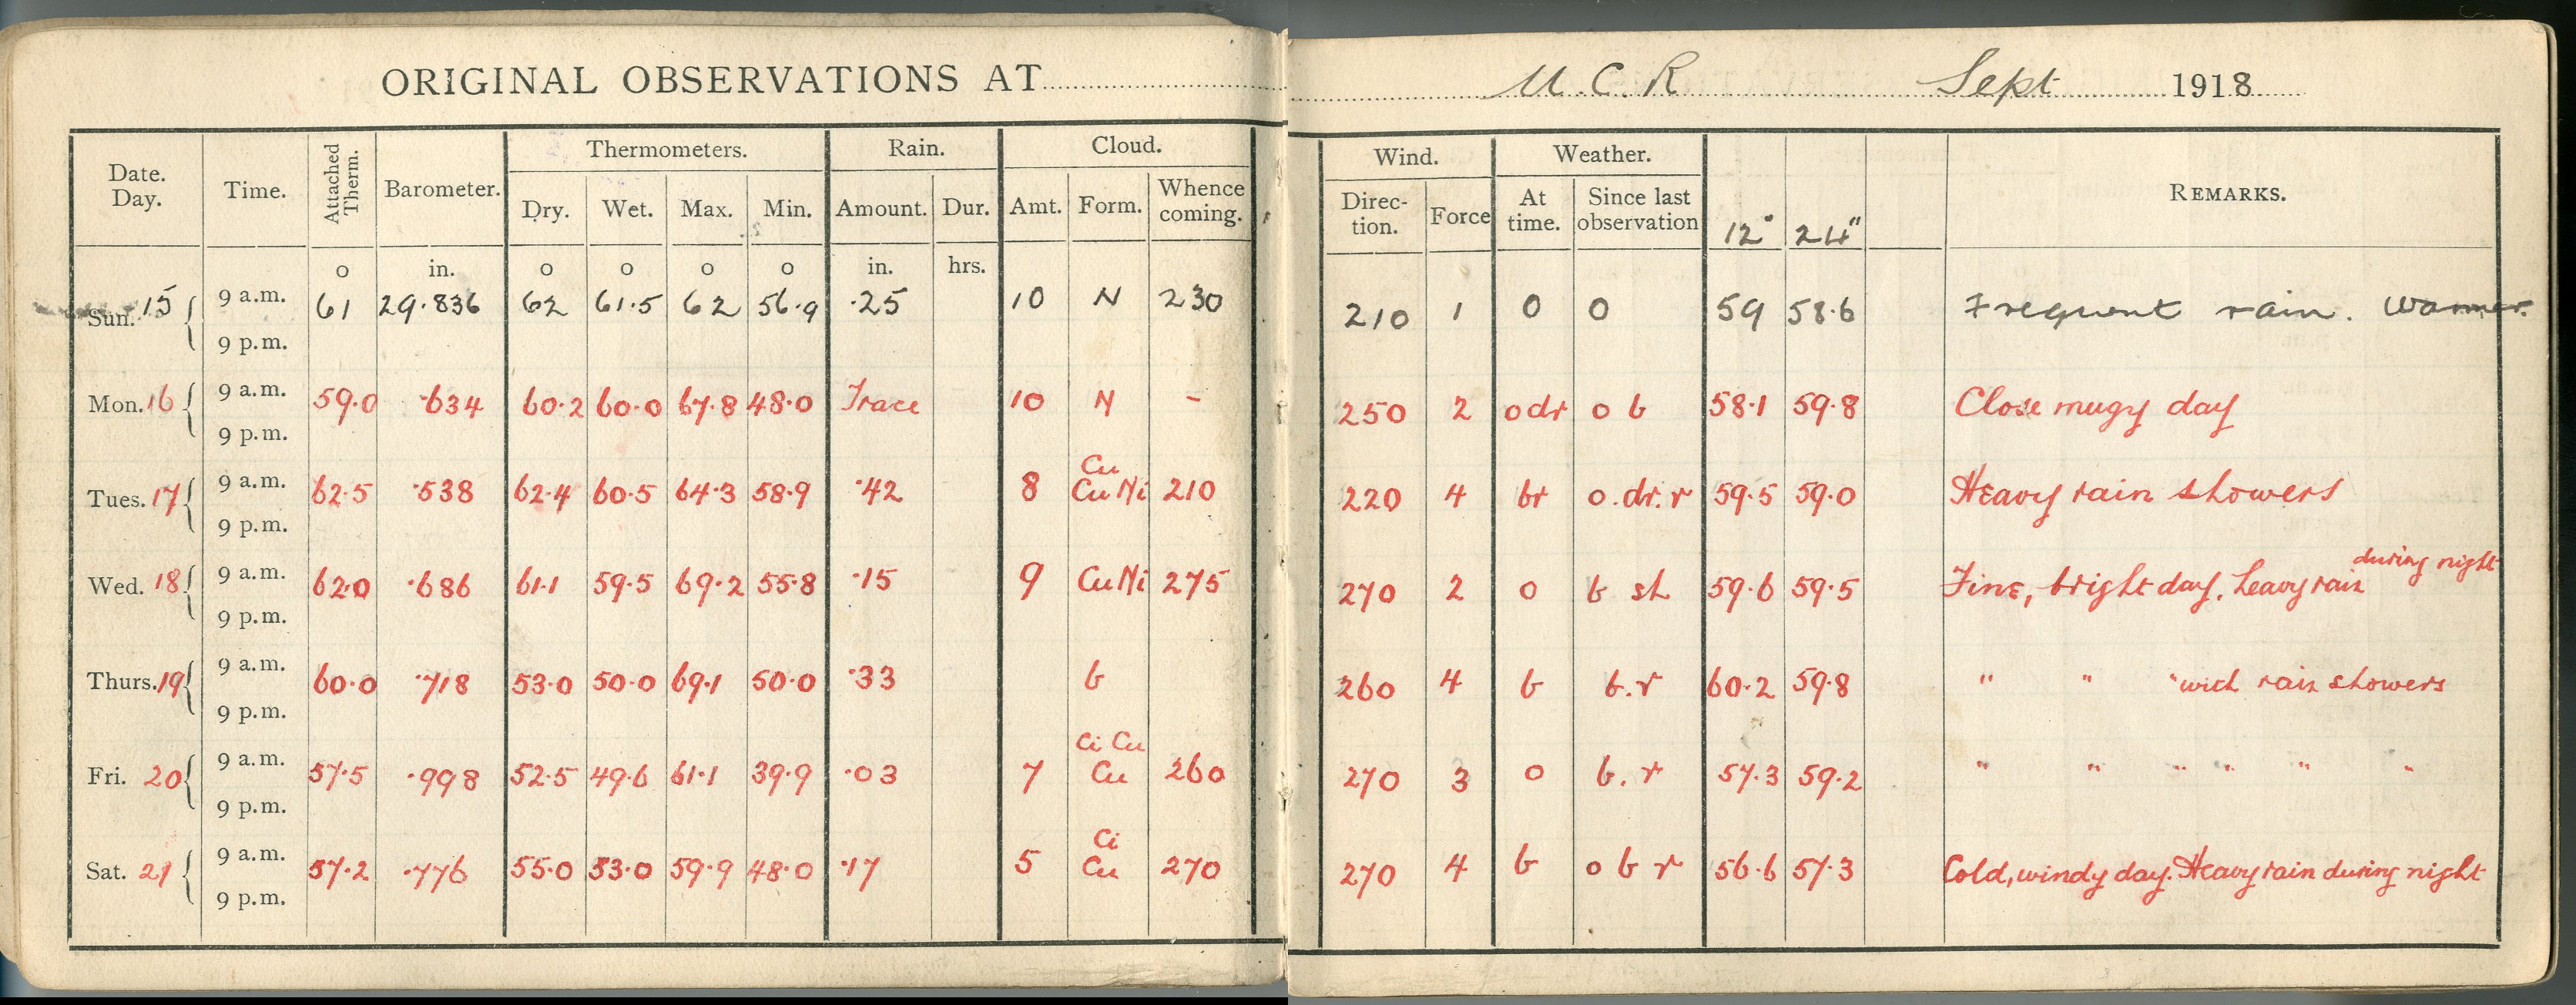 ORIGINAL OBSERVATIONS AT U.C.R Sept 1918
Date. Day. Time. Attached Therm. Barometer. Thermometers. Rain. Cloud. Wind. Weather. REMARKS.
Dry. Wet. Max. Min. Amount. Dur. Amt. Form. Whence coming. Direc- tion. Force At time. Since last observation 12" 24"
o in. o o o o in. hrs.
Sun. 15 9 a.m. 61 29.836 62 61.5 62 56.9 .25 10 N 230 210 1 0 0 59 58.6 Frequent rain. Warmer.
9 p.m.
Mon. 16 9 a.m. 59.0 .634 60.2 60.0 67.8 48.0 Trace 10 N - 250 2 odr o b 58.1 59.8 Close mugy day
9 p.m.
Tues. 17 9 a.m. 62.5 .538 62.4 60.5 64.3 58.9 .42 8 Cu CuNi 210 220 4 br o.dr.r 59.5 59.0 Heavy rain showers
9 p.m.
Wed. 18 9 a.m. 62.0 .686 61.1 59.5 69.2 55.8 .15 9 CuNi 275 270 2 o b sh 59.6 59.5 Fine, bright day, heavy rain during night
9 p.m.
Thurs. 19 9 a.m. 60.0 .718 53.0 50.0 69.1 50.0 .33 b 260 4 b b.r 60.2 59.8 " " " with rain showers
9 p.m.
Fri. 20 9 a.m. 57.5 .998 52.5 49.6 61.1 39.9 .03 7 Ci Cu Cu 260 270 3 o b.r 57.3 59.2 " " " " " "
9 p.m.
Sat. 21 9 a.m. 57.2 .776 55.0 53.0 59.9 48.0 .17 5 Ci Cu 270 270 4 b o b r 56.6 57.3 Cold, windy day. Heavy rain during night
9 p.m.